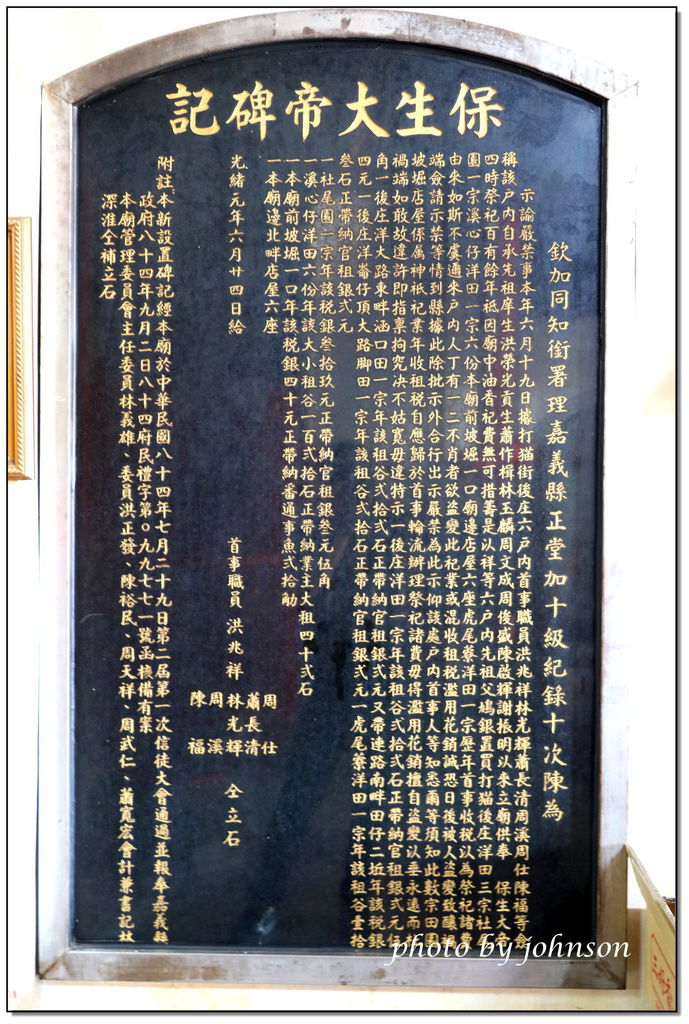 保生大帝碑記
欽加同知銜署理嘉義縣正堂加十級紀錄十次陳為
示諭嚴禁事本年六月十九日據打猫街後庄六戶內首事職員洪兆祥林光輝蕭長清周溪周仕陳福等僉
稱該戶內自承先祖庠生洪榮光貢生蕭作楫林玉麟周文成周俊盛陳啟輝謝振明以來立廟供奉 保生大帝
四時祭祀百有餘年祗因廟中油香祀費無可措籌是以祥等六戶內先祖父鳩銀置買打猫後庄洋田三宗社尾
園一宗溪心仔洋田一宗六份本廟前坡堀一口廟邊店屋六座虎尾藔洋田一宗歷年首事收稅以為祭祀諸費
由來如斯不虞邇來戶內人丁有一二不肖者欲盜變此祀業或混收租稅濫用花銷誠恐日後被人盜變致釀禍
端僉請示禁等情到縣據此除批示外合行出示嚴禁為此示仰該處戶內首事人等知悉爾等須知此數宗田園
坡堀店屋係屬神祗祀業年收租稅自應歸於首事輪流辦理祭祀諸費毋得濫用花銷擅自盜變以垂永遠而杜
禍端如敢故違許即指稟拘究決不姑寬毋違特示一後庄洋田一宗年該租谷弍拾弍石正帶納官租銀弍元伍
角一後庄洋大路東畔涵口田一宗年該租谷弍拾弍石正帶納官租銀弍元又帶連路南畔田仔二近年該稅銀
四元一後庄洋崙仔頂大路脚田一宗年該租谷弍拾石正帶納官租銀弍元一虎尾藔洋田一宗年該租谷壹拾
叁石正帶納官租銀弍元
一社尾園一宗年該稅銀叁拾玖元正帶納官租銀叁元伍角
一溪心仔洋田六份年該大小租谷一百弍拾石正帶納業主大租四十弍石
一本廟前坡堀一口年該稅銀四十元正帶納番通事魚弍拾觔
一本廟邊北畔店屋六座
光緒元年六月廿四日給
首事職員 洪兆祥 周仕 蕭長清 林光輝 周溪 陳福 仝立石
附註：本新設置碑記經本廟於中華民國八十四年七月二十九日第二屆第一次信徒大會通過並報奉嘉義縣
政府八十四年九月二日八十四府民禮字第０九九七七一號函核備有案
本廟管理委員會主任委員林義雄、委員洪正發、陳裕民、周天祥、周武仁、蕭寬宏會計兼書記林
深淮仝補立石
photo by johnson